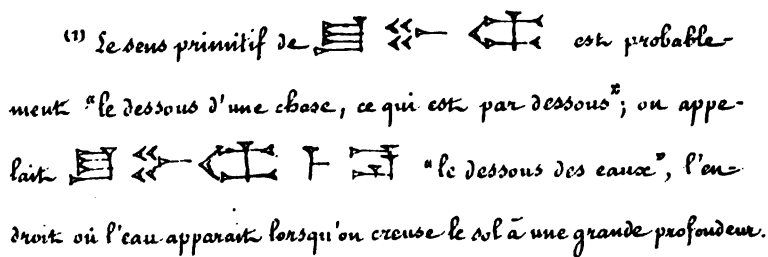 (1) Le sens primitif de 𒋗 𒁍 𒌌 est probable-
ment "le dessous d'une chose, ce qui est par dessous"; on appe-
lait 𒋗 𒁍 𒌌 𒈨 𒂊 "le dessous des eaux", l'en-
droit où l'eau apparait lorsqu'on creuse le sol à une grande profondeur.